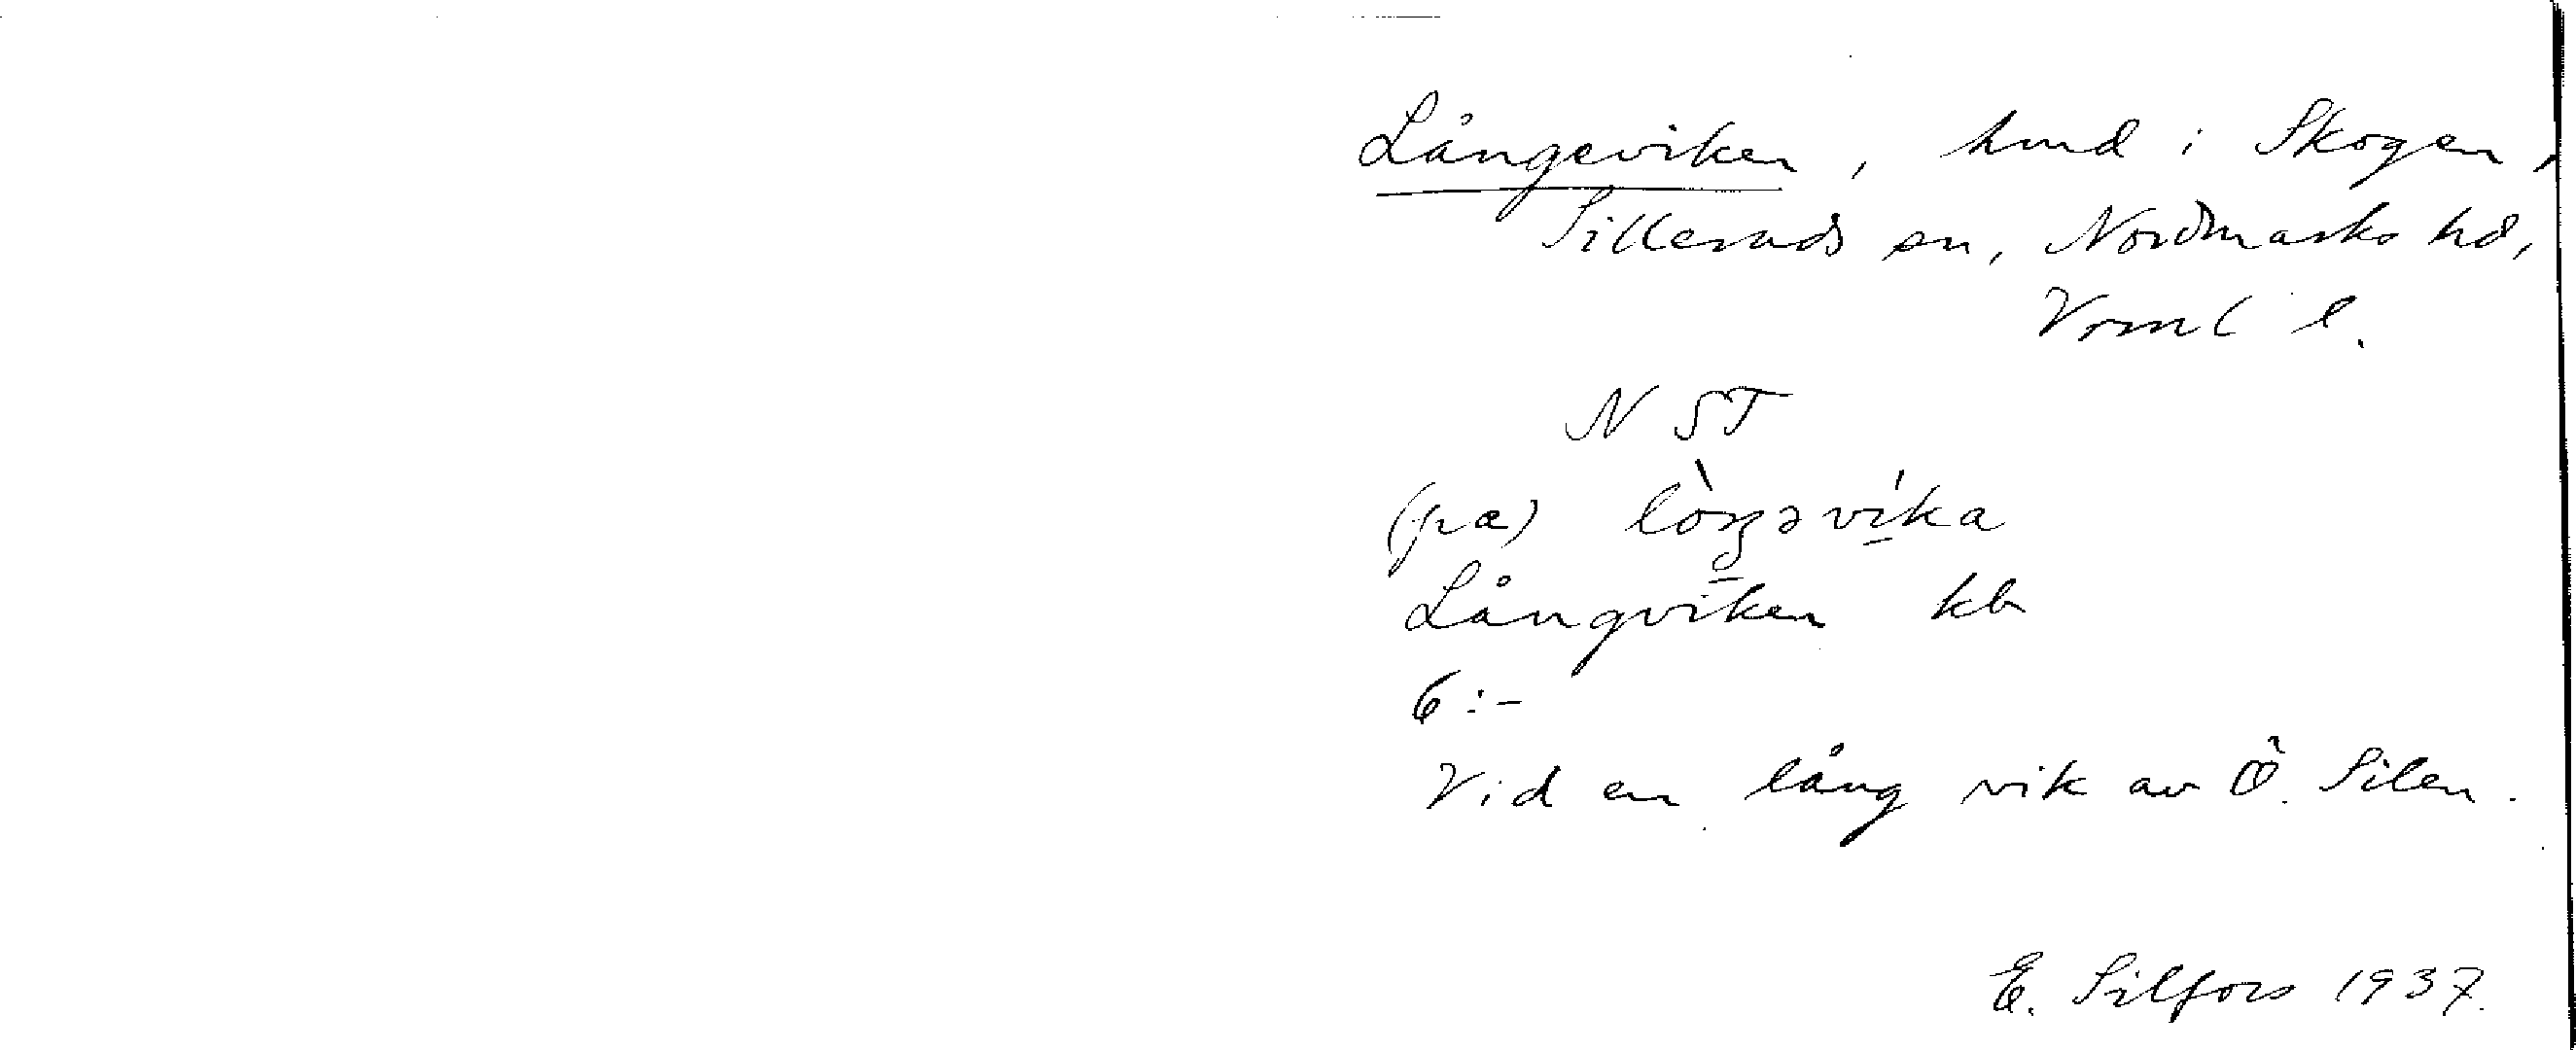 Långeviken, hmd i Skogen,
Silleruds sn, Nordmarks hd,
Vrml l.
N ST
(pæ) lòŋəvíka
Långviken kb
6:-
Vid en lång vik av Ö. Silen.
E. Silfors 1937.